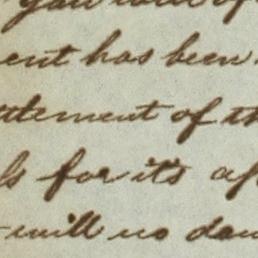 you
ent has been
ttlement of th
ls for it's af
will no dou